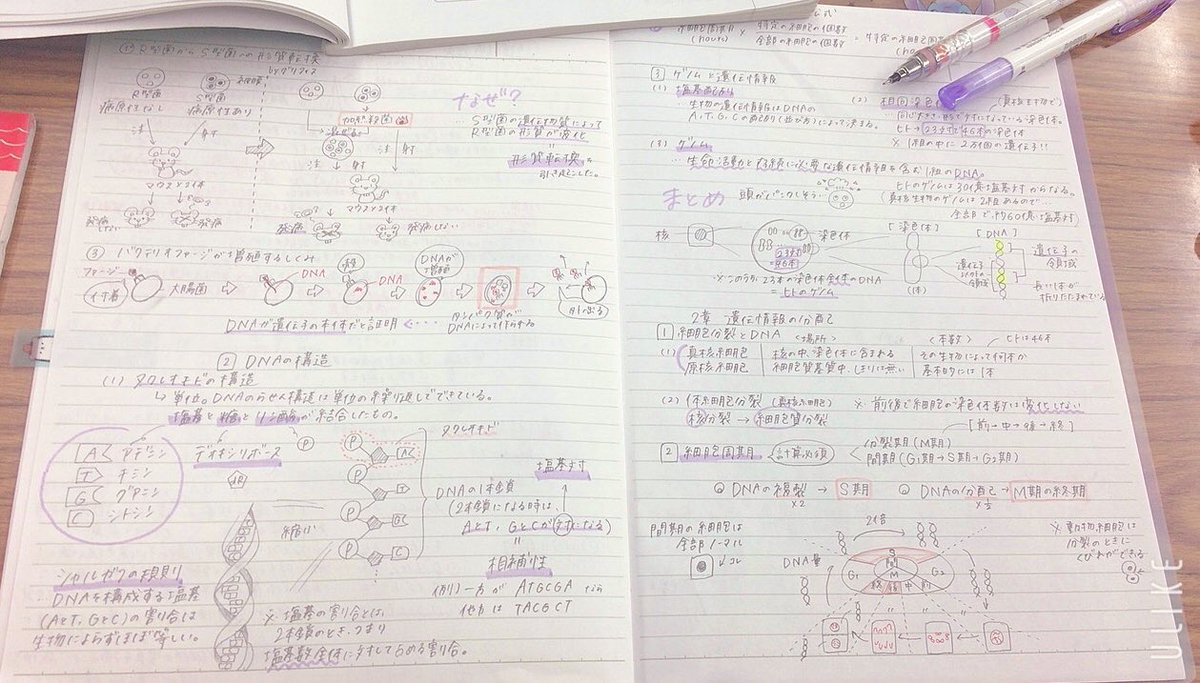 R型菌から S型菌への形質転換
byグリフィス
R型菌
病原性なし
S型菌
病原性あり
注 射
マウス×2体
発病しない
発病
加熱殺菌
混ぜる
注 射
注 射
マウス×2体
発病
発病しない
なぜ?
S型菌の遺伝物質によって
R型菌の形質が変化
形質転換を
引き起こした。
③ バクテリオファージが増殖するしくみ
ファージ
付着
大腸菌
DNA
DNA
DNAが
増殖
タンパク質が
DNAによって作られる。
DNAが遺伝子の本体だと証明
2 DNAの構造
(1) ヌクレオチドの構造
単位。DNAのらせん構造は単位の繰り返しでできている。
塩基と糖とリン酸が結合したもの。
A アデニン
T チミン
G グアニン
C シトシン
デオキシリボース
P
縮小
P A
P T
P G C
P C
ヌクレオチド
塩基対
DNAの1本鎖
(2本鎖になる時は、
AとT、GとCが対になる)
相補性
(例) 一方が ATGCGA なら
他方は TACGCT
シャルガフの規則
DNAを構成する塩基
(AとT、GとC)の割合は
生物によらずほぼ等しい。
※ 塩基の割合とは、
2本鎖のとき、つまり
塩基数全体に対して占める割合。
細胞周期
(hours)
×
特定の細胞の個数
全部の細胞の個数
3 ゲノムと遺伝情報
(1) 塩基配列
生物の遺伝情報はDNAの
A、T、G、Cの配列(並び方)によって決まる。
(2) 相同染色体
(真核生物で)
同じ大きさ・形で対になっている染色体。
ヒト→23対で46本の染色体
※ 1組の中に2万個の遺伝子!!
(3) ゲノム
生命活動と存続に必要な遺伝情報を含む1組のDNA。
ヒトのゲノムは30億塩基対からなる。
(真核生物のゲノムは2組あるので…
全部で約60億塩基対)
まとめ
頭がパンクしそう…
核
染色体
23対
46本
[染色体]
(1本)
[DNA]
遺伝子の
領域
遺伝子
以外の
領域
長い1本が
折りたたまれている
※ このうち、23本の染色体全体のDNA
=ヒトのゲノム
2章 遺伝情報の分配
1 細胞分裂とDNA
〈場所〉
〈本数〉
ヒトは46本
(1) 真核細胞 核の中、染色体に含まれる その生物によって何本か
原核細胞 細胞質基質中、しきりは無い 基本的には1本
(2) 体細胞分裂 (真核細胞) ※ 前後で細胞の染色体数は変化しない
核分裂→細胞質分裂
[前→中→後→終]
2 細胞周期 計算必須
分裂期(M期)
間期(G1期→S期→G2期)
DNAの複製→S期
×2
DNAの分配→M期の終期
×1/2
間期の細胞は
全部ノーマル
コレ
DNA量
2倍
G1
S
G2
M
※ 動物細胞は
分裂のときに
くびれができる
ULIKE